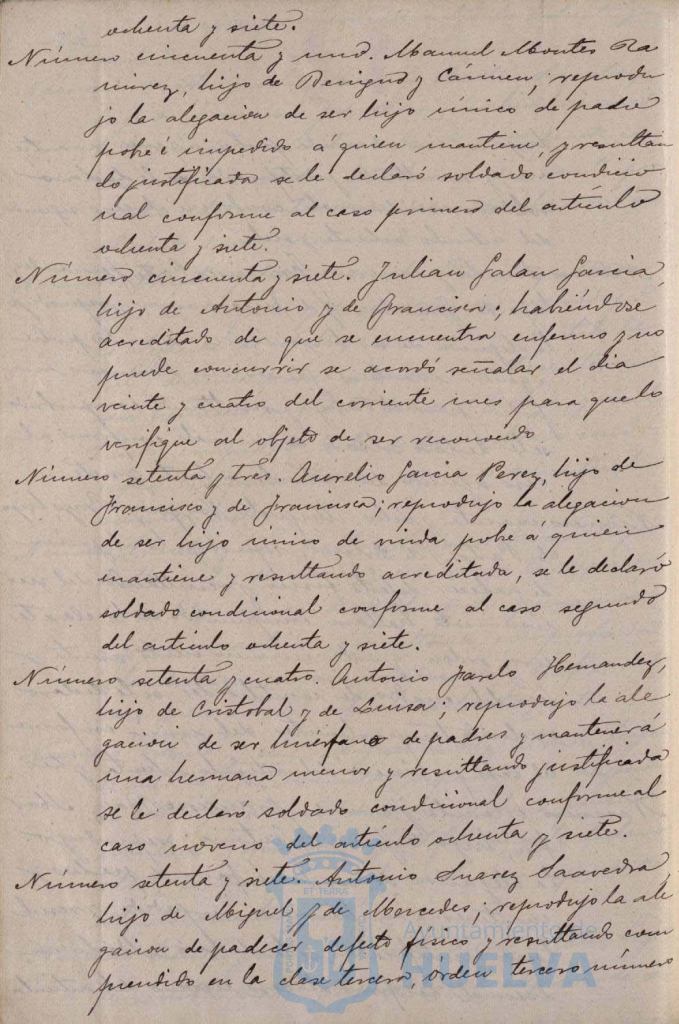 ochenta y siete.
Número cincuenta y uno. Manuel Montes Ra
mirez, hijo de Benigno y Cármen; reprodu
jo la alegacion de ser hijo único de padre
pobre é impedido á quien mantiene, y resultan
do justificada se le declaró soldado condicio
nal conforme al caso primero del artículo
ochenta y siete.
Número cincuenta y siete. Julian Galan Garcia,
hijo de Antonio y de Francisca; habiéndose
acreditado de que se encuentra enfermo y no
puede concurrir se acordó señalar el dia
veinte y cuatro del corriente mes para que lo
verifique al objeto de ser reconocido.
Número setenta y tres. Aurelio Garcia Perez, hijo de
Francisco y de Francisca; reprodujo la alegacion
de ser hijo único de viuda pobre á quien
mantiene y resultando acreditada, se le declaró
soldado condicional conforme al caso segundo
del artículo ochenta y siete.
Número setenta y cuatro. Antonio Hernandez,
hijo de Cristobal y de Luisa; reprodujo la ale
gacion de ser huérfano de padres y mantener á
una hermana menor y resultando justificada
se le declaró soldado condicional conforme al
caso noveno del artículo ochenta y siete.
Número setenta y siete. Antonio Suarez Saavedra,
hijo de Miguel y de Mercedes; reprodujo la ale
gacion de padecer defecto físico y resultando com
prendido en la clase tercera, orden tercero número
Ayuntamiento de
HUELVA